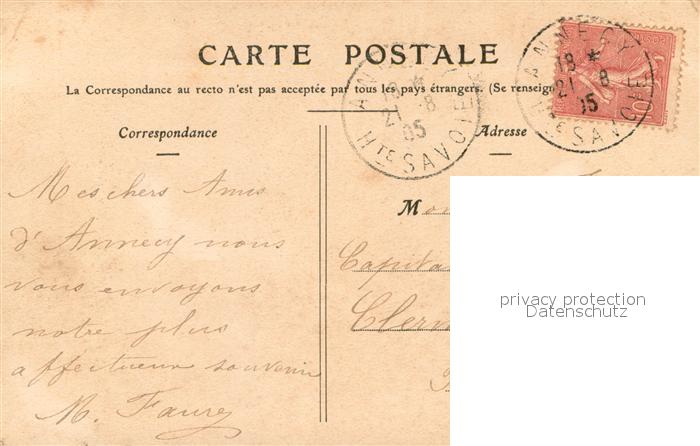 CARTE POSTALE
La Correspondance au recto n'est pas acceptée par tous les pays étrangers. (Se renseign
Correspondance
Mes chers Amis
d'Annecy nous
vous envoyons
notre plus
affectueux souvenir
M. Faure
Adresse
M
Capita
Clerm
ANNECY
18 *
21 -8
05
HTE SAVOIE
ANNECY
18 *
21 8
05
HTE SAVOIE
privacy protection
Datenschutz